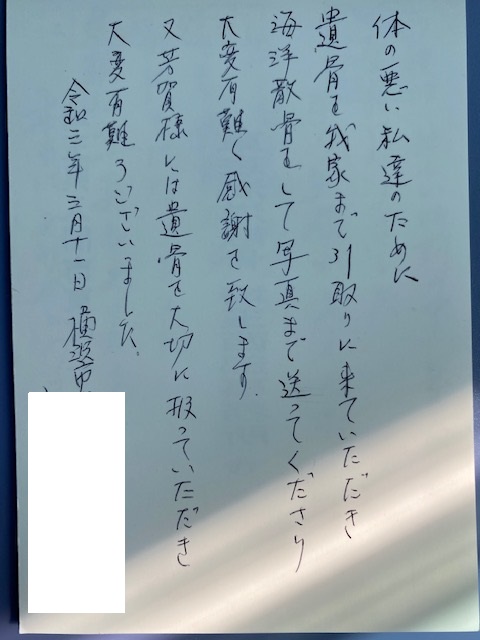 体の悪い私達のために
遺骨を我家まで引取りに来ていただき
海洋散骨をして写真まで送ってくださり
大変有難く感謝を致します。
又芳賀様には遺骨を大切に扱っていただき
大変有難うございました。
令和三年三月十一日 横浜市